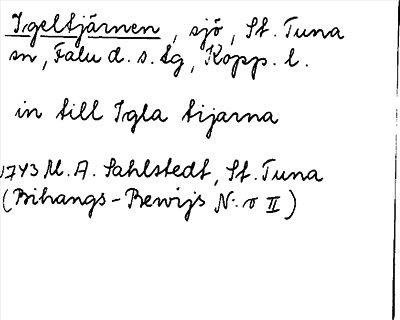 Igeltjärnen, sjö, St. Tuna
sn, Falu d. s. tg, Kopp. l.
in till Igla tijarna
1743 M. A. Sahlstedt, St. Tuna
(Bihangs-Bewijs N:o II)